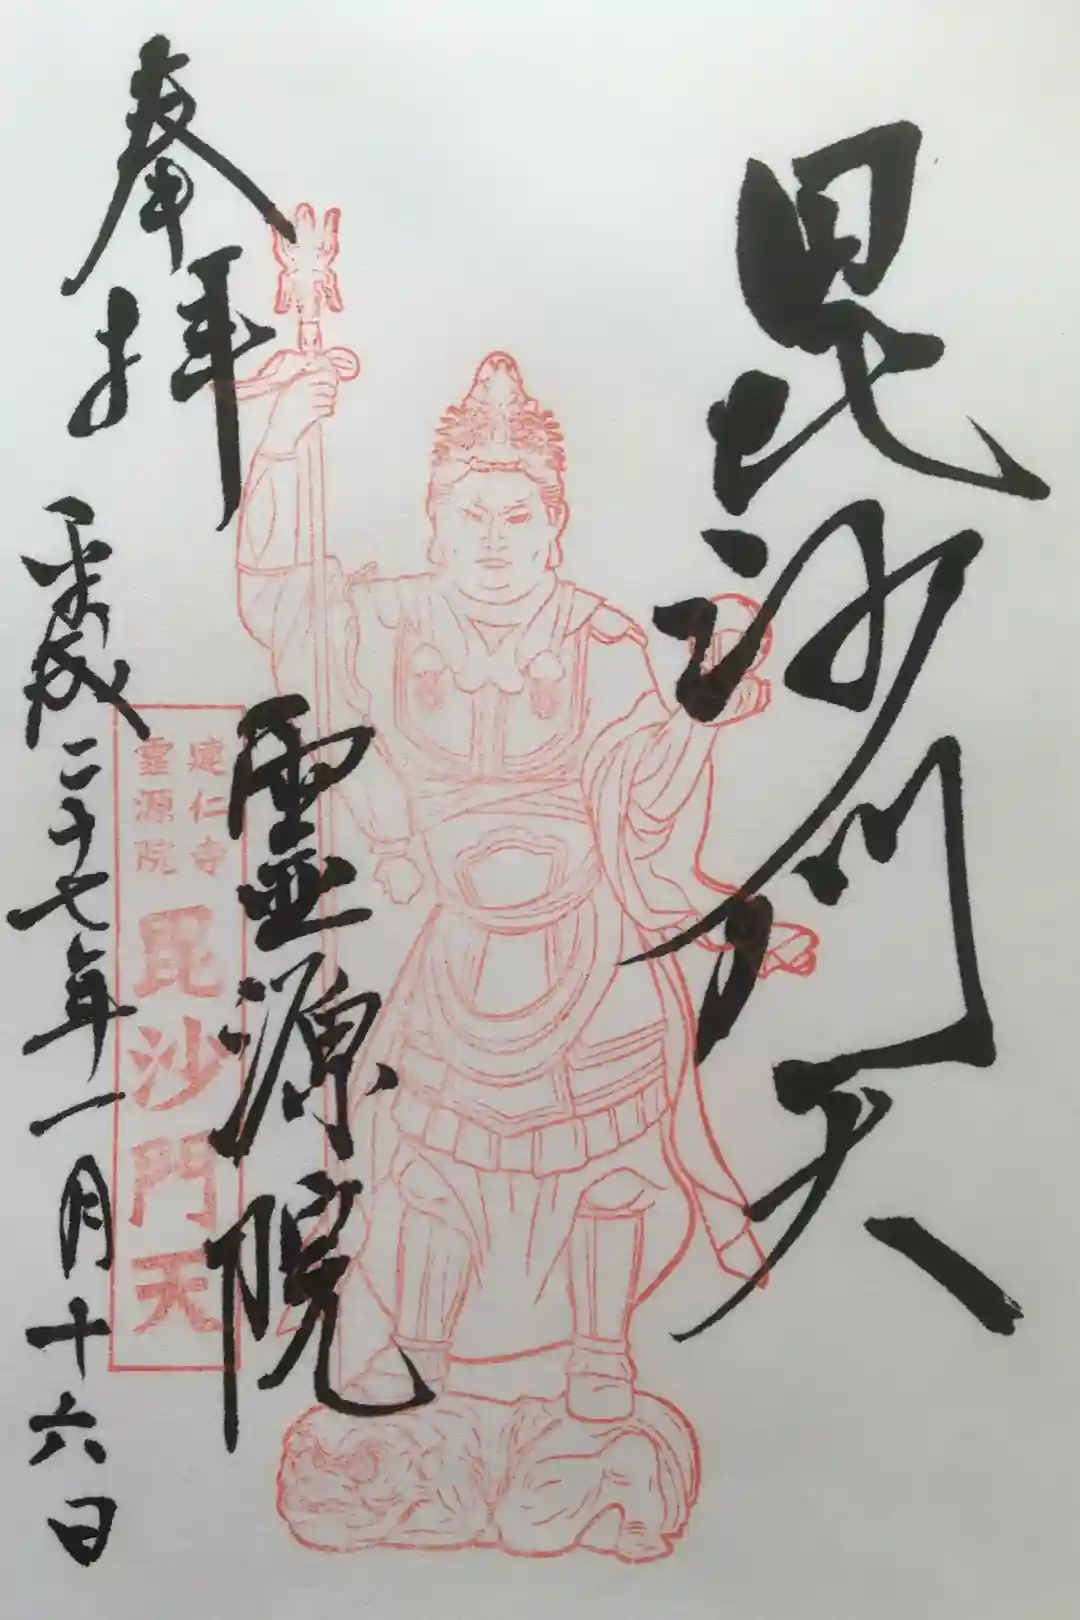 毘沙門天
霊源院
奉拝
平成二十七年一月十六日
建仁寺
霊源院
毘沙門天